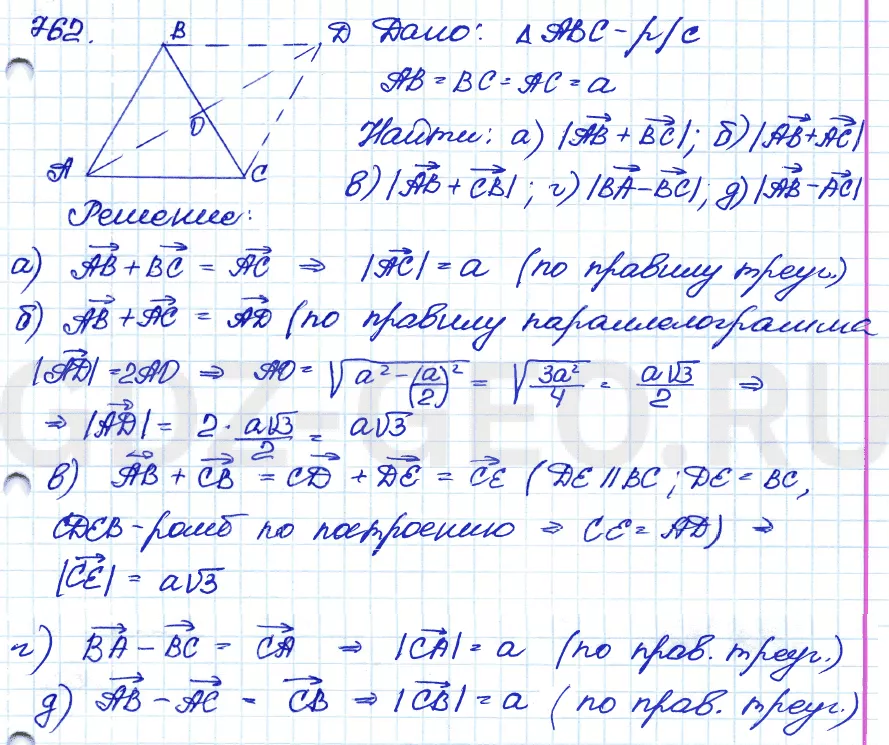 762. B D Дано: Δ ABC - р/с
AB = BC = AC = a
O
Найти: а) |AB⃗ + BC⃗|; б) |AB⃗ + AC⃗|
A C
в) |AB⃗ + CB⃗|; г) |BA⃗ - BC⃗|; д) |AB⃗ - AC⃗|
Решение:
а) AB⃗ + BC⃗ = AC⃗ ⇒ |AC⃗| = a (по правилу треуг.)
б) AB⃗ + AC⃗ = AD⃗ (по правилу параллелограмма
|AD⃗| = 2AO ⇒ AO = √(a² - (a/2)²) = √(3a²/4) = a√3/2 ⇒
⇒ |AD⃗| = 2 · a√3/2 = a√3
в) AB⃗ + CB⃗ = CD⃗ + DE⃗ = CE⃗ (DE || BC; DE = BC,
CDEB - ромб по построению ⇒ CE = AD) ⇒
|CE⃗| = a√3
г) BA⃗ - BC⃗ = CA⃗ ⇒ |CA⃗| = a (по прав. треуг.)
д) AB⃗ - AC⃗ = CB⃗ ⇒ |CB⃗| = a (по прав. треуг.)
GDZ-GEO.RU